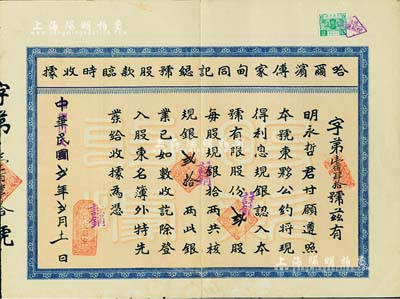 上海陽明拍賣
哈爾濱傅家甸同記總號股款臨時收據
字第號茲有
明永哲君甘願遵照
本號東夥公約將現
得利息現銀認入本
號有限股份貳股
每股現銀拾兩共核
現銀貳拾兩此銀
業已如數收訖除登
入股東名簿外特先
發給收據為憑
中華民國弍年弍月十一日
字第
號